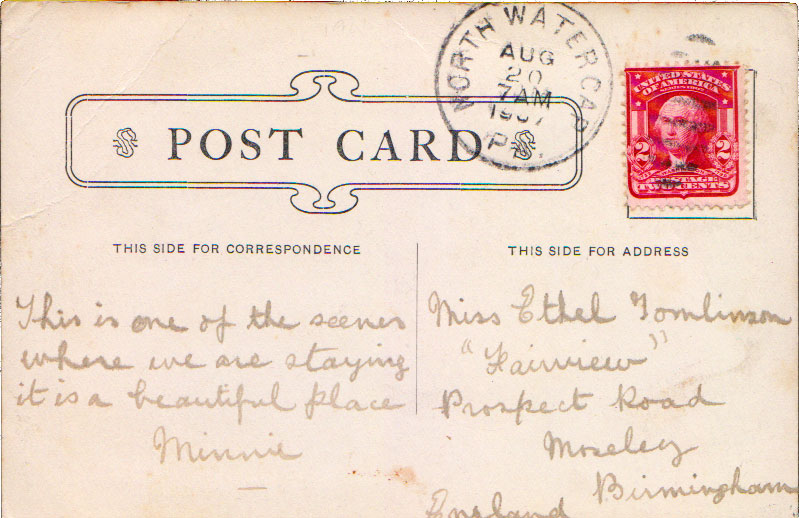 NORTH WATER GAP
AUG
20
7AM
1907
PA.
UNITED STATES
OF AMERICA
SERIES 1902
2 2
POSTAGE
TWO CENTS
POST CARD
THIS SIDE FOR CORRESPONDENCE
This is one of the scenes
where we are staying
it is a beautiful place
Minnie
THIS SIDE FOR ADDRESS
Miss Ethel Tomlinson
"Fairview"
Prospect Road
Moseley
Birmingham
England